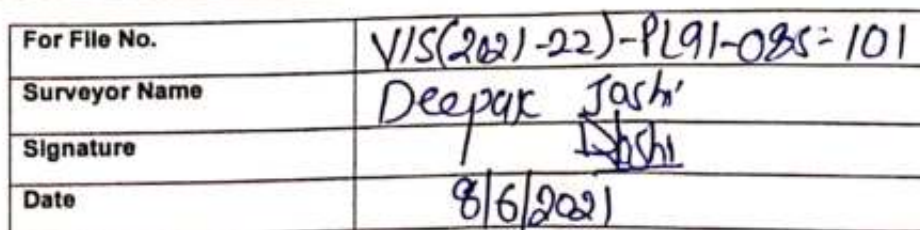 For File No. VIS(2021-22)-PL91-085-101
Surveyor Name Deepak Joshi
Signature DJoshi
Date 8/6/2021